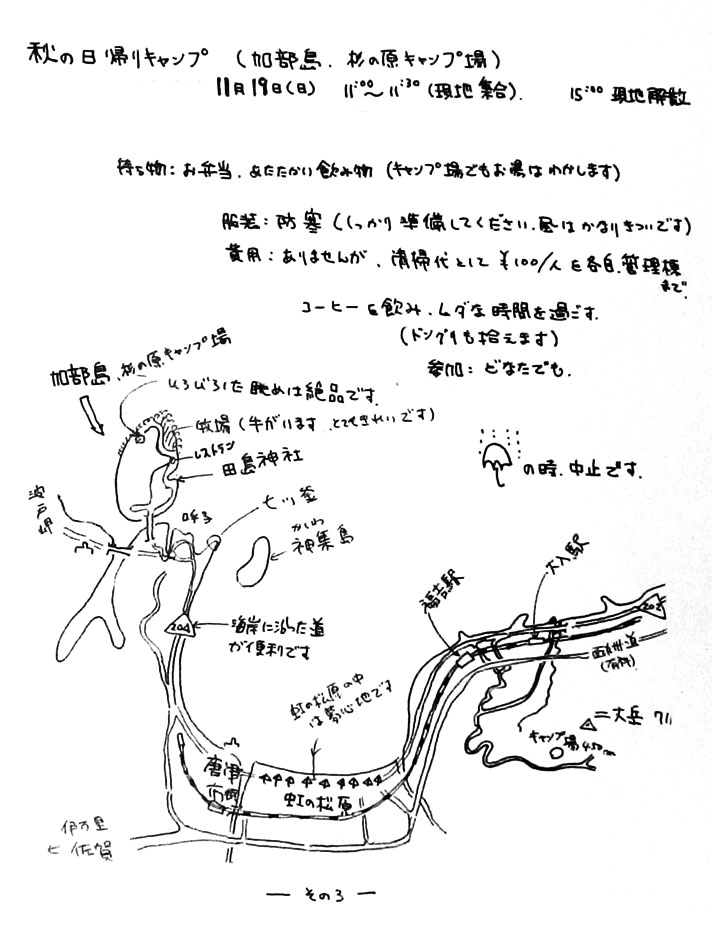 秋の日帰りキャンプ (加部島、杉の原キャンプ場)
11月19日(日) 11:00〜11:30(現地集合). 15:00現地解散
持ち物:お弁当、あたたかい飲み物(キャンプ場でもお湯はわかします)
服装:防寒(しっかり準備してください、昼はかなりきついです)
費用:ありませんが、清掃代として¥100/人を各自、管理棟
まで
コーヒーを飲み、ムダな時間を過ごす.
(ドングリも拾えます)
参加:どなたでも.
加部島、杉の原キャンプ場
ひろびろした眺めは絶品です
牧場(牛がいます とてもきれいです)
レストラン
田島神社
の時、中止です.
波戸岬
呼子
七ツ釜
かしわ
神集島
大入駅
福吉駅
202
204
海岸に沿った道
が便利です
西九州道
(有料)
虹の松原の中
は夢心地です
二丈岳 711
キャンプ場 450m
唐津市街
虹の松原
伊万里
佐賀
— その3 —